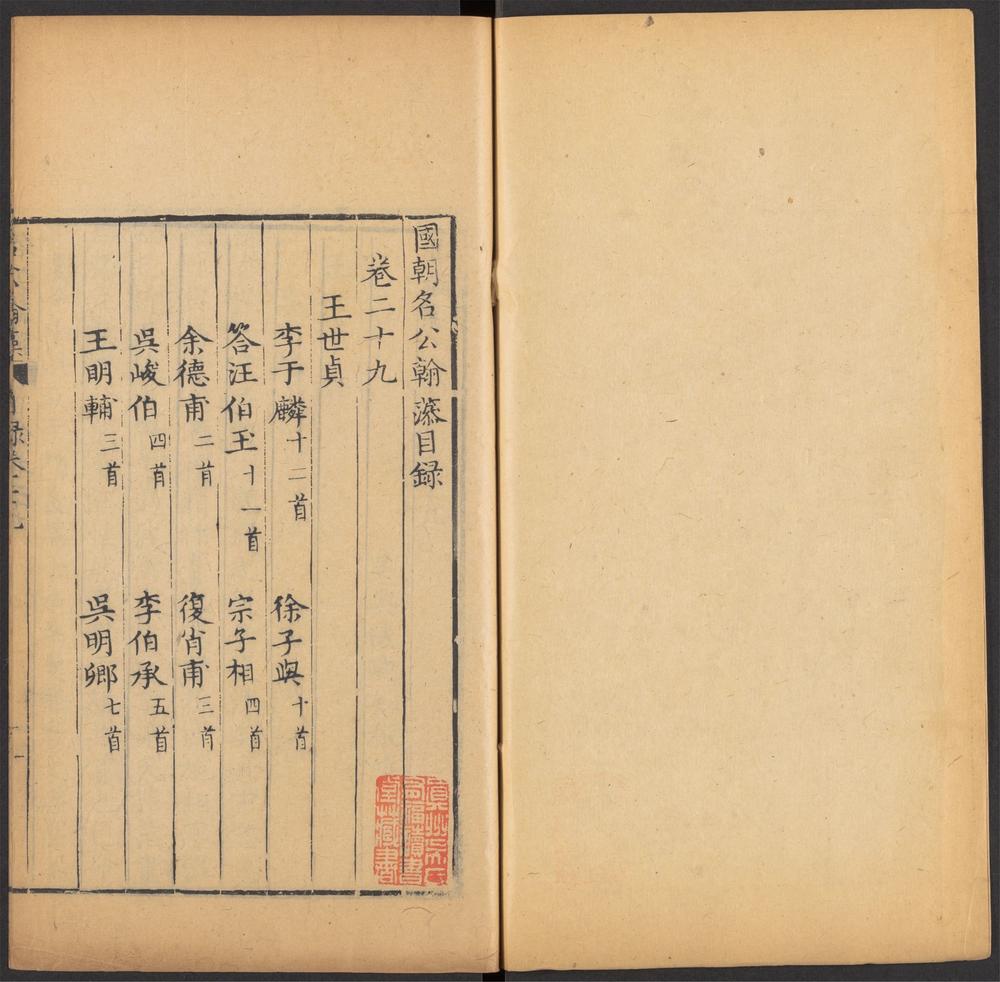 國朝名公翰藻目録
卷二十九
王世貞
李于麟十二首 徐子與十首
答汪伯玉十一首 宗子相四首
余德甫二首 復肖甫三首
吳峻伯四首 李伯承五首
王明輔三首 吳明卿七首
真州吳氏
有福讀書
堂藏書